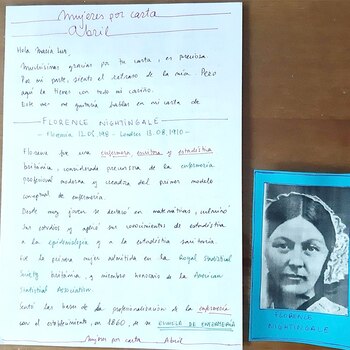 Mujeres por carta
Abril
Hola María Luz,
Muchísimas gracias por tu carta, es preciosa.
Por mi parte, siento el retraso de la mía. Pero
aquí la tienes con todo mi cariño.
Este mes me gustaría hablar en mi carta de
FLORENCE NIGHTINGALE
Florencia 12.05. - Londres 13.08.1910
Florence fue una enfermera, escritora y estadística
británica, considerada precursora de la enfermería
profesional moderna y creadora del primer modelo
conceptual de enfermería.
Desde muy joven se destacó en matemáticas, culminó
sus estudios y aplicó sus conocimientos de estadística
a la epidemiología y a la estadística sanitaria.
Fue la primera mujer admitida en la Royal Statistical
Society británica, y miembro honorario de la American
Statistical Association.
Sentó las bases de la profesionalización de la enfermería
con el establecimiento, en 1860, de su ESCUELA DE ENFERMERÍA
Mujeres por carta Abril
FLORENCE
NIGHTINGALE